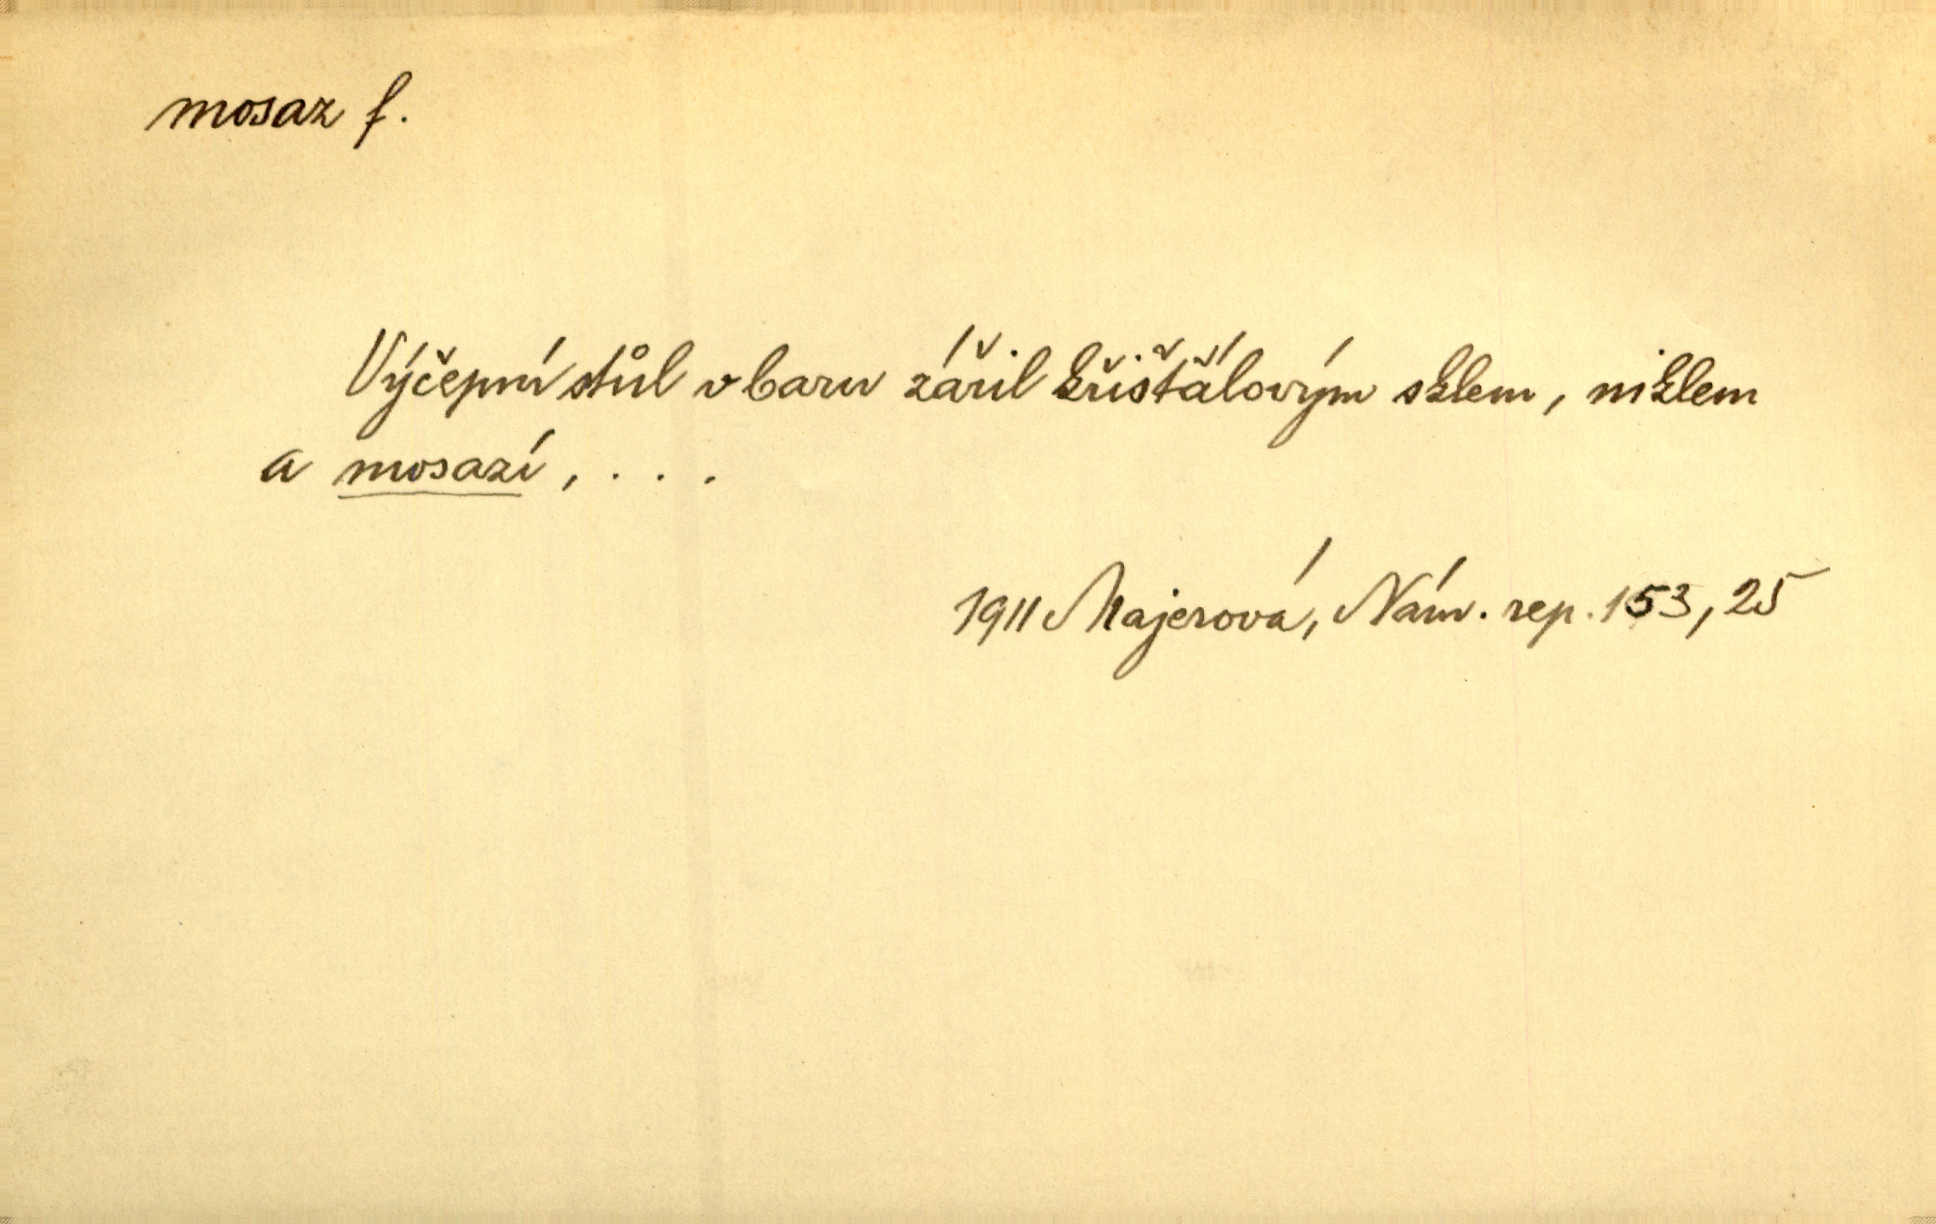 mosaz f.
Výčepní stůl v baru zářil křišťálovým sklem, niklem
a mosazí, . . .
1911 Majerová, Nám. rep. 153, 25